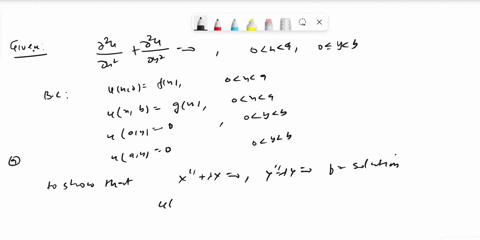 Given: ∂²u/∂x² + ∂²u/∂y² = 0, 0<x<a, 0≤y<b
B.C: u(x,0) = f(x), 0<x<a
u(x, b) = g(x), 0<x<a
u(0,y) = 0, 0<y<b
u(a,y) = 0 0<y<b
to show that x'' + λx = 0, y'' - λy = 0 solution
u(